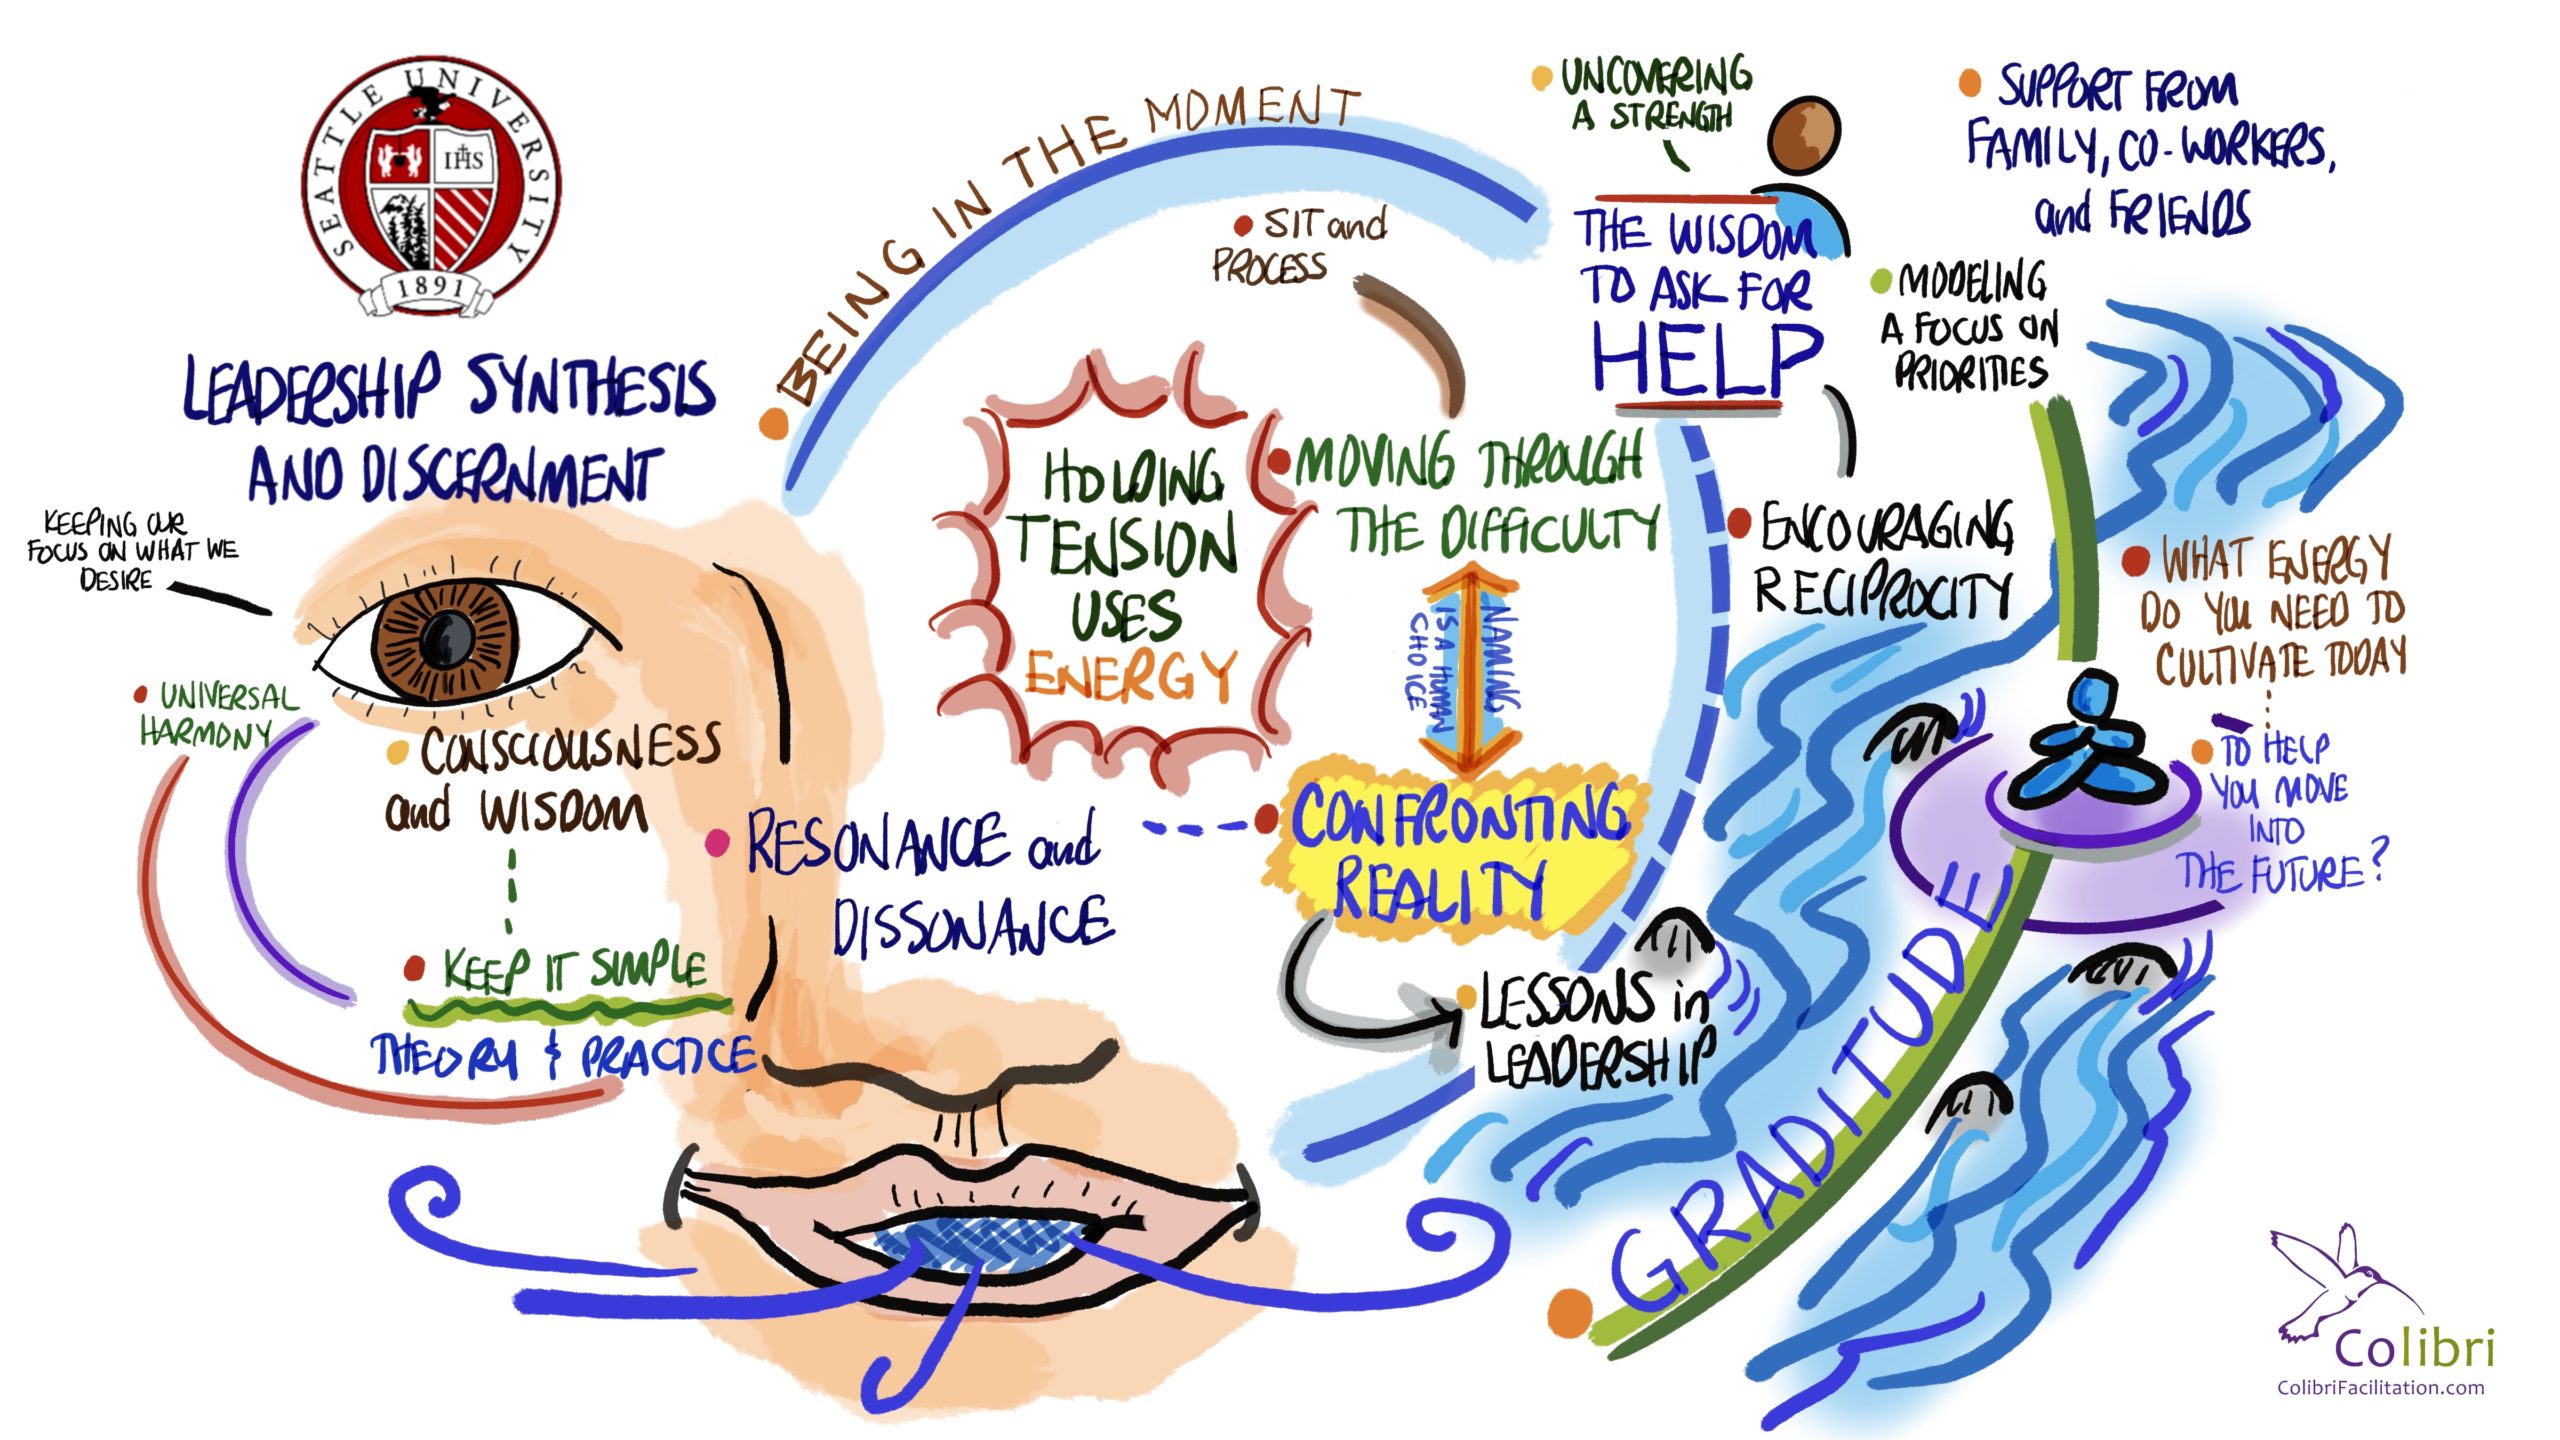 SEATTLE UNIVERSITY
IHS
1891
LEADERSHIP SYNTHESIS
AND DISCERNMENT
KEEPING OUR
FOCUS ON WHAT WE
DESIRE
UNIVERSAL
HARMONY
CONSCIOUSNESS
and WISDOM
KEEP IT SIMPLE
THEORY & PRACTICE
RESONANCE and
DISSONANCE
BEING IN THE MOMENT
SIT and
PROCESS
HOLDING
TENSION
USES
ENERGY
MOVING THROUGH
THE DIFFICULTY
NAMING
IS A HUMAN
CHOICE
CONFRONTING
REALITY
LESSONS in
LEADERSHIP
UNCOVERING
A STRENGTH
THE WISDOM
TO ASK FOR
HELP
SUPPORT FROM
FAMILY, CO-WORKERS,
and FRIENDS
MODELING
A FOCUS ON
PRIORITIES
ENCOURAGING
RECIPROCITY
WHAT ENERGY
DO YOU NEED TO
CULTIVATE TODAY
TO HELP
YOU MOVE
INTO
THE FUTURE?
GRADITUDE
Colibri
ColibriFacilitation.com